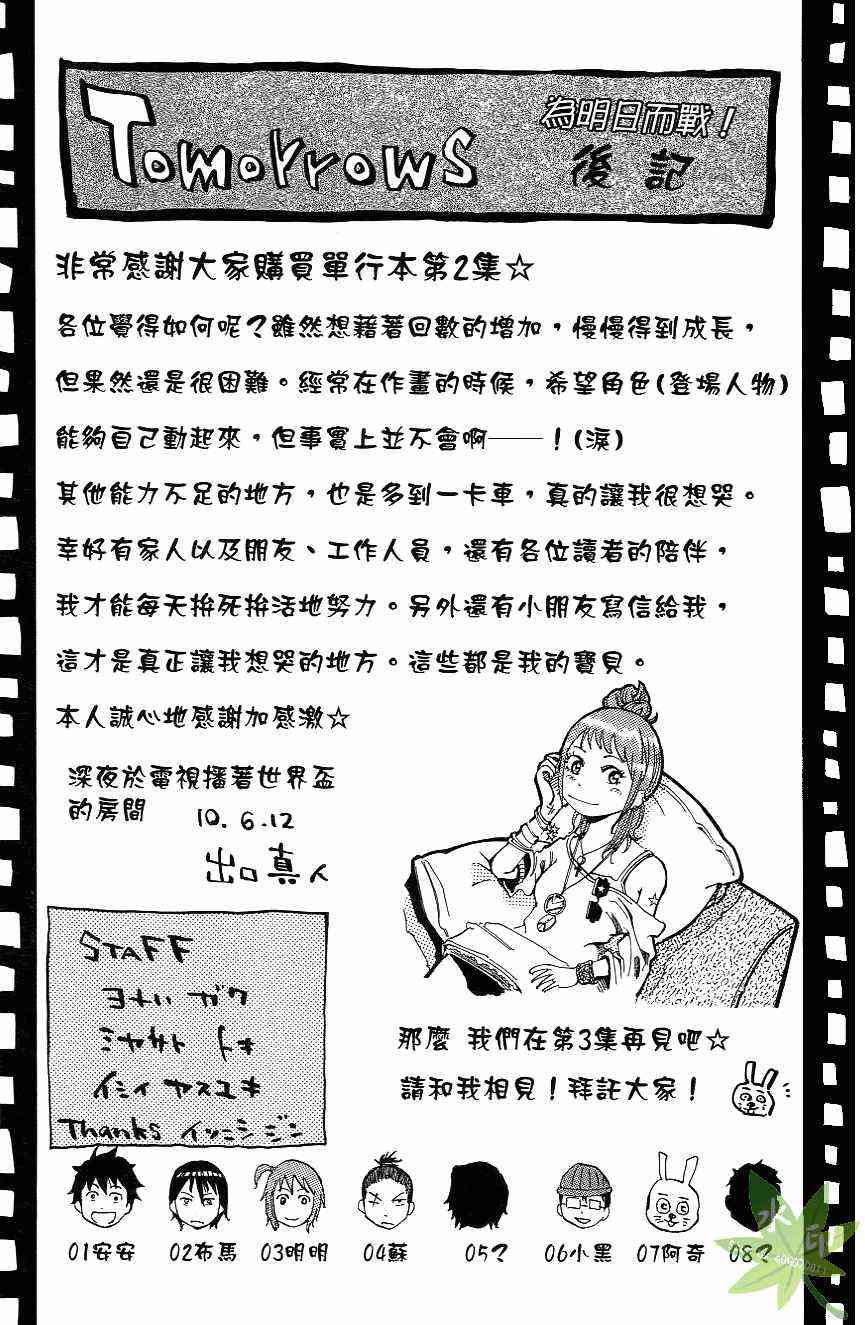 Tomorrows
為明日而戰！
後記
非常感謝大家購買單行本第2集☆
各位覺得如何呢？雖然想藉著回數的增加，慢慢得到成長，
但果然還是很困難。經常在作畫的時候，希望角色(登場人物)
能夠自己動起來，但事實上並不會啊——！(淚)
其他能力不足的地方，也是多到一卡車，真的讓我很想哭。
幸好有家人以及朋友、工作人員，還有各位讀者的陪伴，
我才能每天拚死拚活地努力。另外還有小朋友寫信給我，
這才是真正讓我想哭的地方。這些都是我的寶貝。
本人誠心地感謝加感激☆
深夜於電視播著世界盃
的房間
10.6.12
出口真人
STAFF
ヨナハ ガク
ミヤサト トキ
イシイ ヤスユキ
Thanks イツニシ ジン
那麼 我們在第3集再見吧☆
請和我相見！拜託大家！
01安安
02布馬
03明明
04蘇
05？
06小黑
07阿奇
08？
水印